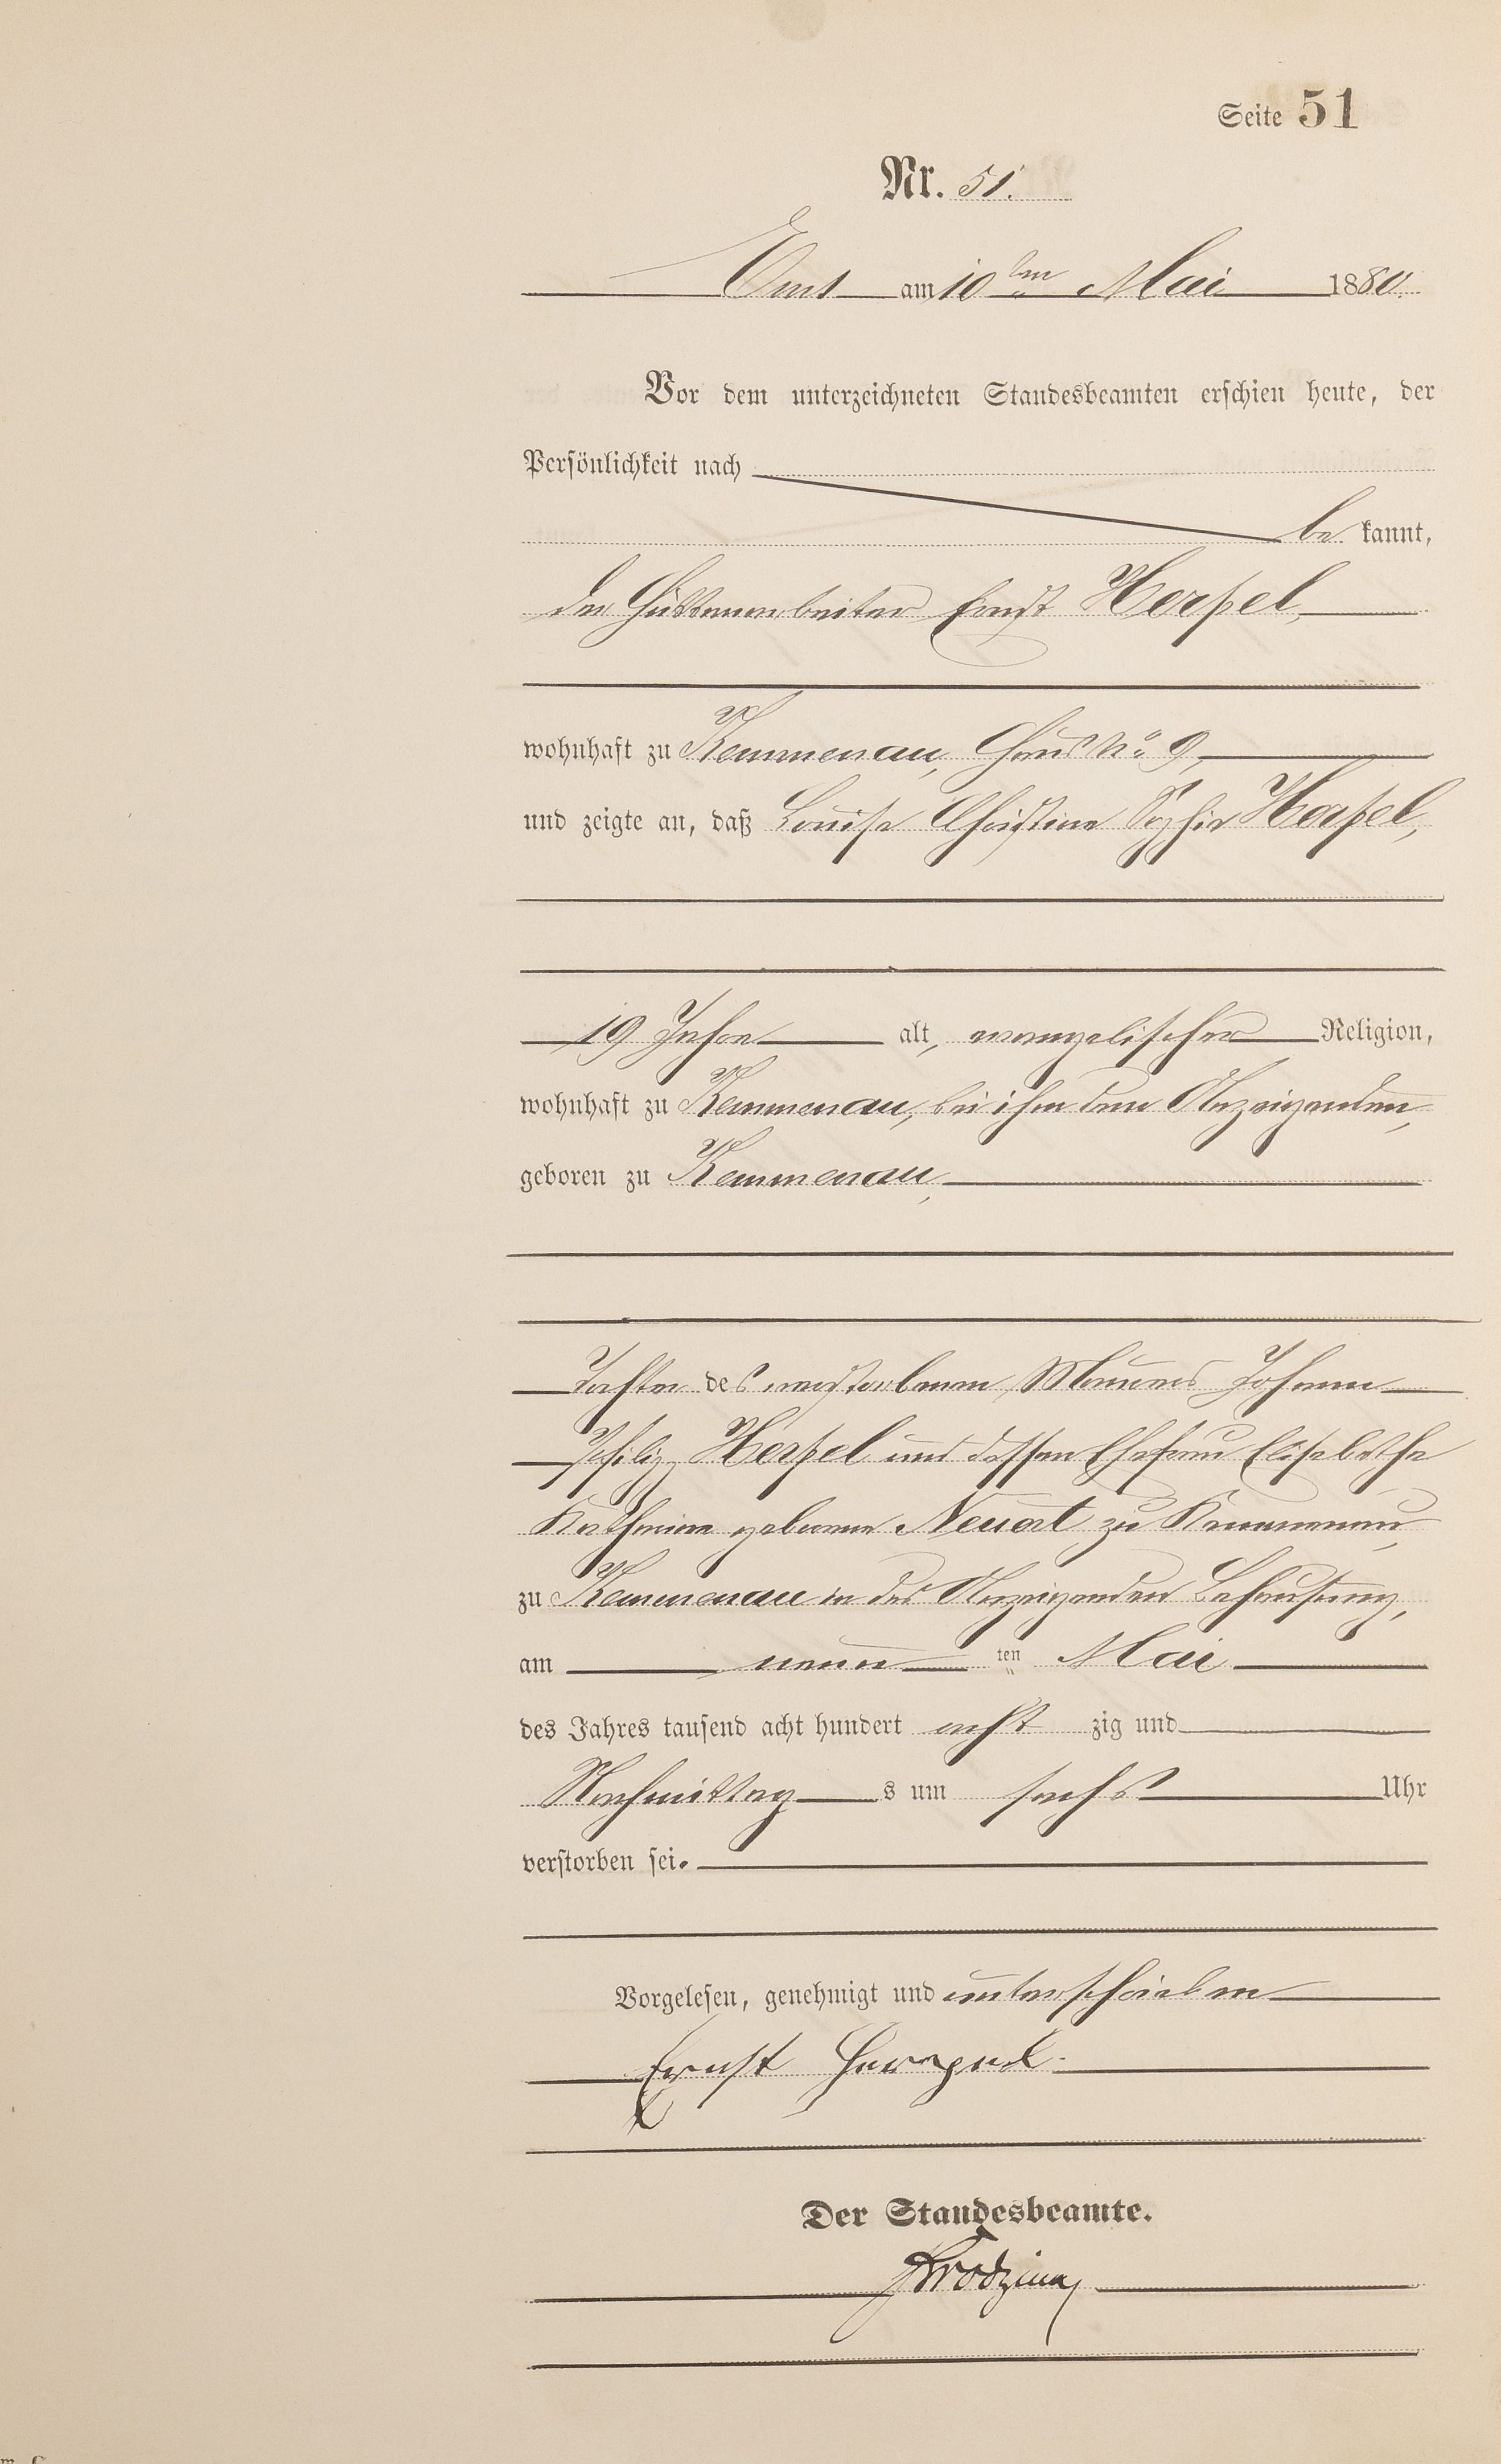 Seite 51
Nr. 51.
Ems am 10ten Mai 1880.
Vor dem unterzeichneten Standesbeamten erschien heute, der
Persönlichkeit nach
be kannt,
der Hüttenarbeiter Ernst Herpel,
wohnhaft zu Kemmenau, Haus No 9,
und zeigte an, daß Louise Christine Sophie Herpel,
19 Jahre alt, evangelischer Religion,
wohnhaft zu Kemmenau, bei ihm dem Anzeigenden,
geboren zu Kemmenau,
Tochter des verstorbenen Maurers Johann
Philipp Herpel und dessen Ehefrau Elisabethe
Katharine geborene Neuert zu Kemmenau,
zu Kemmenau in des Anzeigenden Behausung,
am neun ten Mai
des Jahres tausend acht hundert acht zig und
Nachmittag s um sechs Uhr
verstorben sei.
Vorgelesen, genehmigt und unterschrieben
Ernst Herpel
Der Standesbeamte.